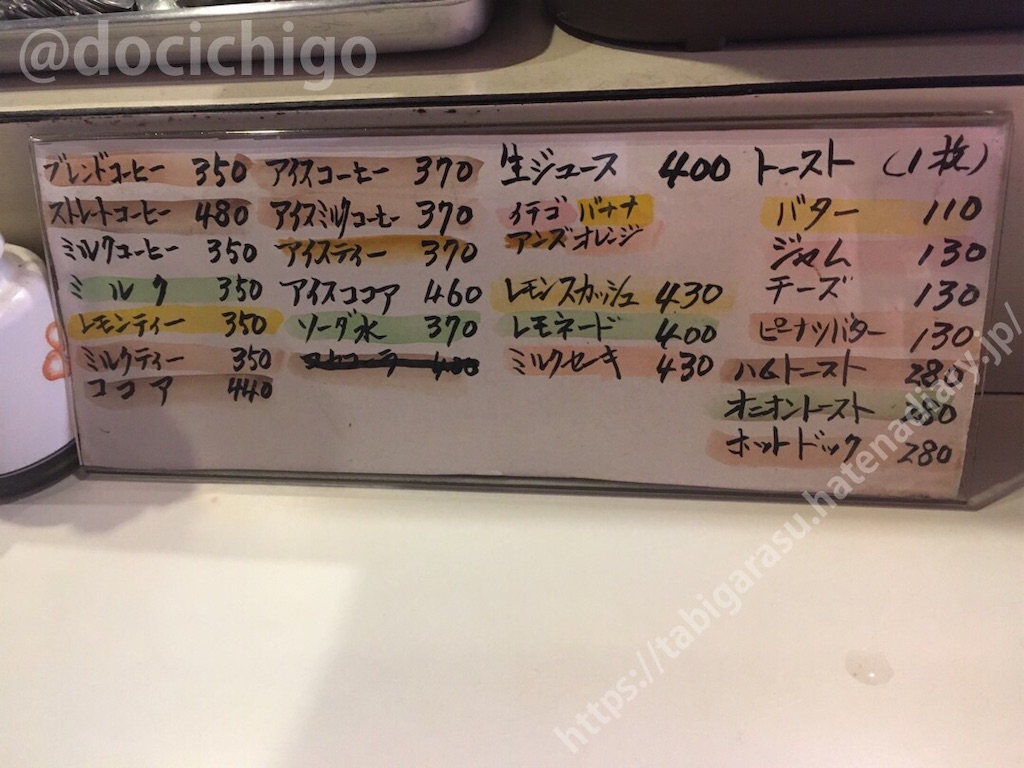 @docichigo
ブレンドコーヒー 350
ストレートコーヒー 480
ミルクコーヒー 350
ミルク 350
レモンティー 350
ミルクティー 350
ココア 440
アイスコーヒー 370
アイスミルクコーヒー 370
アイスティー 370
アイスココア 460
ソーダ水 370
400
生ジュース 400
イチゴ バナナ
アンズ オレンジ
レモンスカッシュ 430
レモネード 400
ミルクセーキ 430
トースト (1枚)
バター 110
ジャム 130
チーズ 130
ピーナツバター 130
ハムトースト 280
オニオントースト 280
ホットドック 280
https://tabigarasu.hatenadiary.jp/